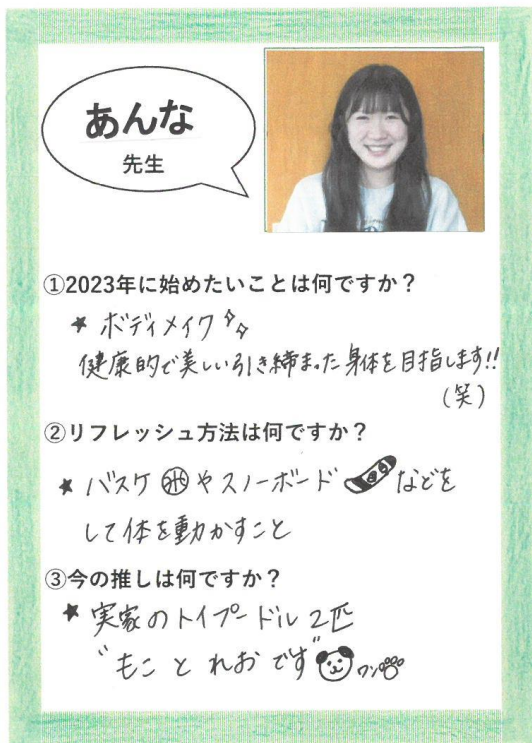 あんな
先生
①2023年に始めたいことは何ですか？
★ ボディメイク
健康的で美しい引き締まった身体を目指します!!
（笑）
②リフレッシュ方法は何ですか？
★ バスケやスノーボードなどを
して体を動かすこと
③今の推しは何ですか？
★ 実家のトイプードル2匹
"もことれおです"ワン